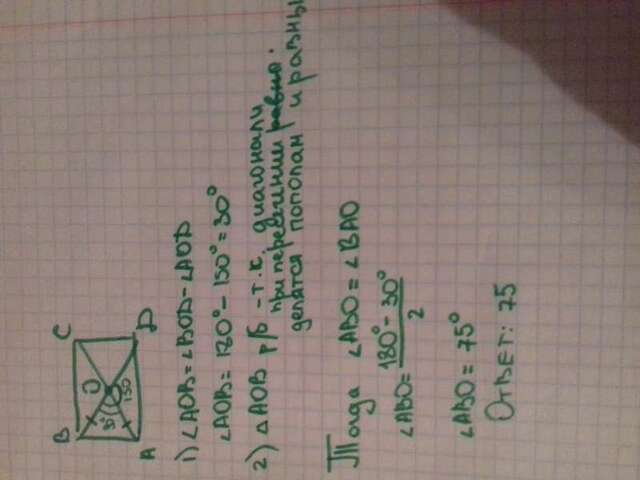 B C
O
30°
150
A D
1) ∠AOB = ∠BOD - ∠AOD
∠AOB = 180° - 150° = 30°
2) △AOB р/б - т.к. диагонали
при пересечении равно.
делятся пополам и равны
Тогда ∠ABO = ∠BAO
∠ABO = 180° - 30°
2
∠ABO = 75°
Ответ: 75